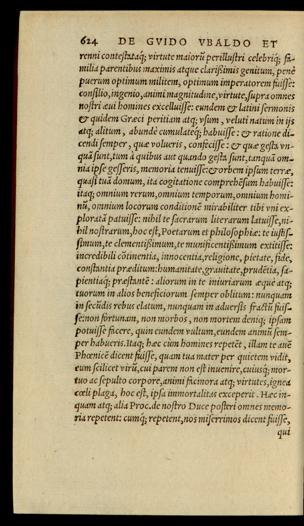 624 DE GVIDO VBALDO ET
renni contestataq́; virtute maiorū perillustri celebriq́; fa-
milia parentibus maximis atque clarißimis genitum, penè
puerum optimum militem, optimum imperatorem fuisse:
consilio, ingenio, animi magnitudine, virtute, supra omnes
nostri æui homines excelluisse: eundem & latini sermonis
& quidem Græci peritiam atq; vsum, veluti natum in ijs
atq; alitum, abundè cumulateq́; habuisse: & ratione di-
cendi semper, quæ volueris, confecisse: & quæ gesta vn-
quã sunt, tum à quibus aut quando gesta sunt, tanquã om-
nia ipse gesseris, memoria tenuisse: & orbem ipsum terræ,
quasi tuã domum, ita cogitatione comprehẽsum habuisse:
itaq; omnium rerum, omnium temporum, omnium homi-
nū, omnium locorum conditionẽ mirabiliter tibi vni ex-
ploratã patuisse: nihil te sacrarum literarum latuisse, ni-
hil nostrarum, hoc est, Poetarum et philosophiæ: te iustis-
simum, te clementißimum, te munificentißimum extitisse:
incredibili cōtinentia, innocentia, religione, pietate, fide,
constantia præditum: humanitate, grauitate, prudẽtia, sa-
pientiaq́; præstantẽ: aliorum in te iniuriarum æque atq;
tuorum in alios beneficiorum semper oblitum: nunquam
in secūdis rebus elatum, nunquam in aduersis fractū fuis-
se: non fortunam, non morbos, non mortem deniq; ipsam
potuisse ficere, quin eundem vultum, eundem animū sem-
per habueris. Itaq; hæc cùm homines repetēt, illam te auẽ
Phœnicẽ dicent fuisse, quam tua mater per quietem vidit,
eum scilicet virū, cui parem non est inuenire, cuiusq́; mor-
tuo ac sepulto corpore, animi facinora atq; virtutes, ignea
cœli plaga, hoc est, ipsa immortalitas exceperit. Hæc in-
quam atq; alia Proc. de nostro Duce posteri omnes memo-
ria repetent: cumq́; repetent, nos miserrimos dicent fuisse,
qui